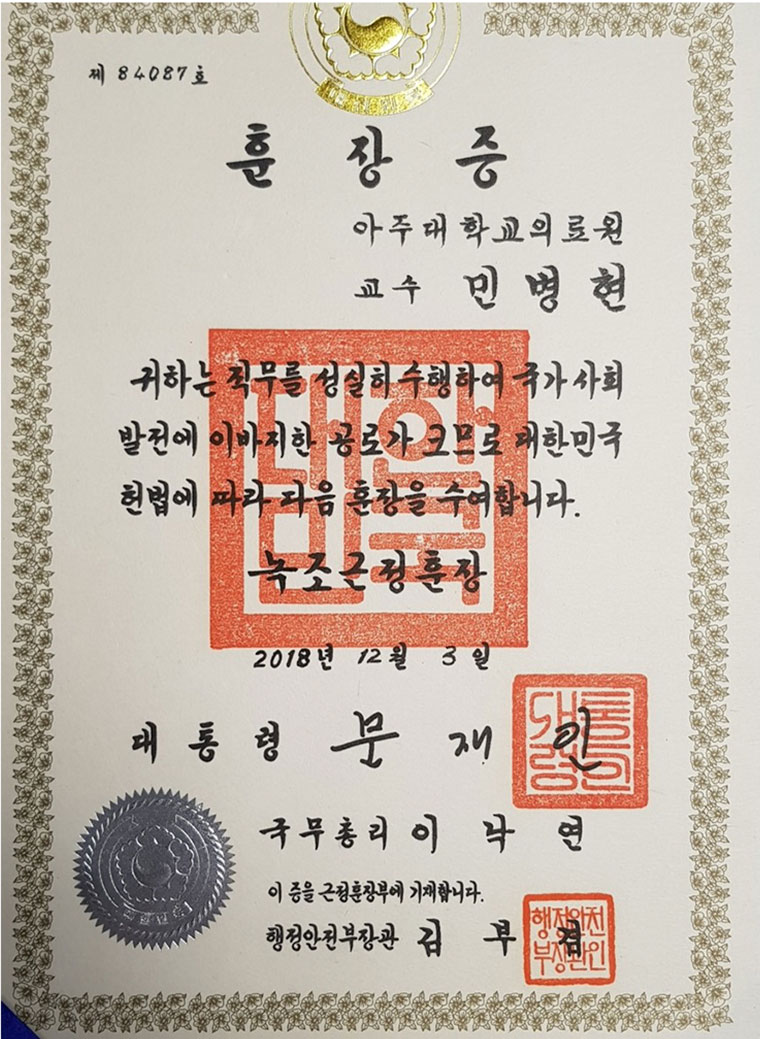 제 84087 호
훈 장 증
아주대학교의료원
교수 민병현
귀하는 직무를 성실히 수행하여 국가 사회
발전에 이바지한 공로가 크므로 대한민국
헌법에 따라 다음 훈장을 수여합니다.
녹조근정훈장
2018년 12월 3일
대 통 령 문 재 인
국무총리 이 낙 연
이 증을 근정훈장부에 기재합니다.
행정안전부장관 김 부 겸